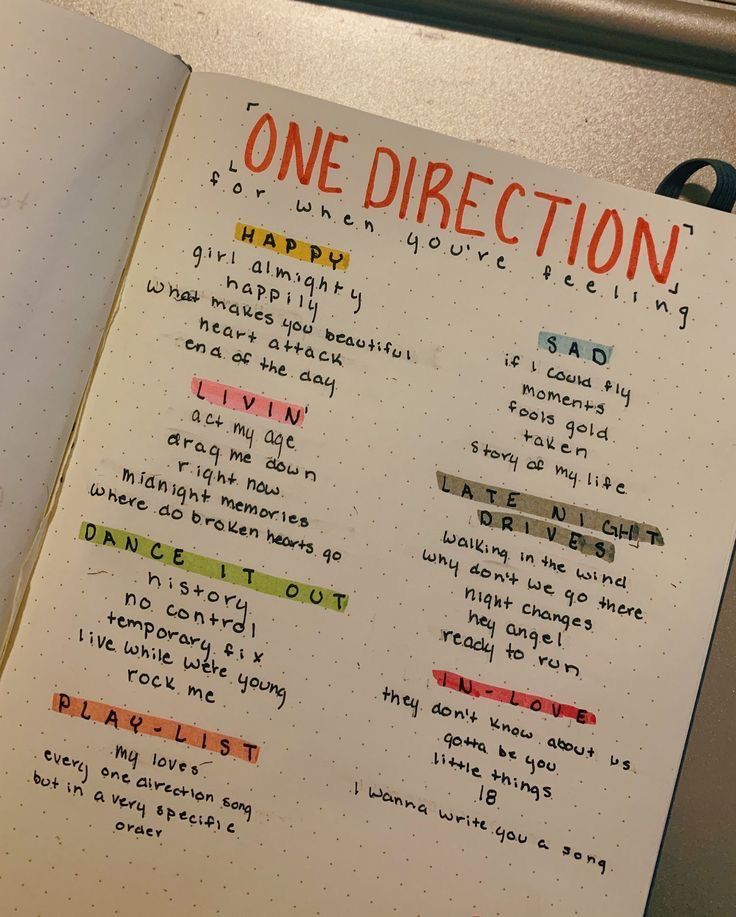 「ONE DIRECTION」
for when you're feeling
HAPPY
girl almighty
happily
what makes you beautiful
heart attack
end of the day
LIVIN'
act my age
drag me down
right now
midnight memories
where do broken hearts go
DANCE IT OUT
history
no control
temporary fix
live while we're young
rock me
PLAY-LIST
my loves
every one direction song
but in a very specific
order
SAD
if i could fly
moments
fools gold
taken
story of my life
LATE NIGHT
DRIVES
walking in the wind
why don't we go there
night changes
hey angel
ready to run
IN-LOVE
they don't know about us
gotta be you
little things
18
i wanna write you a song